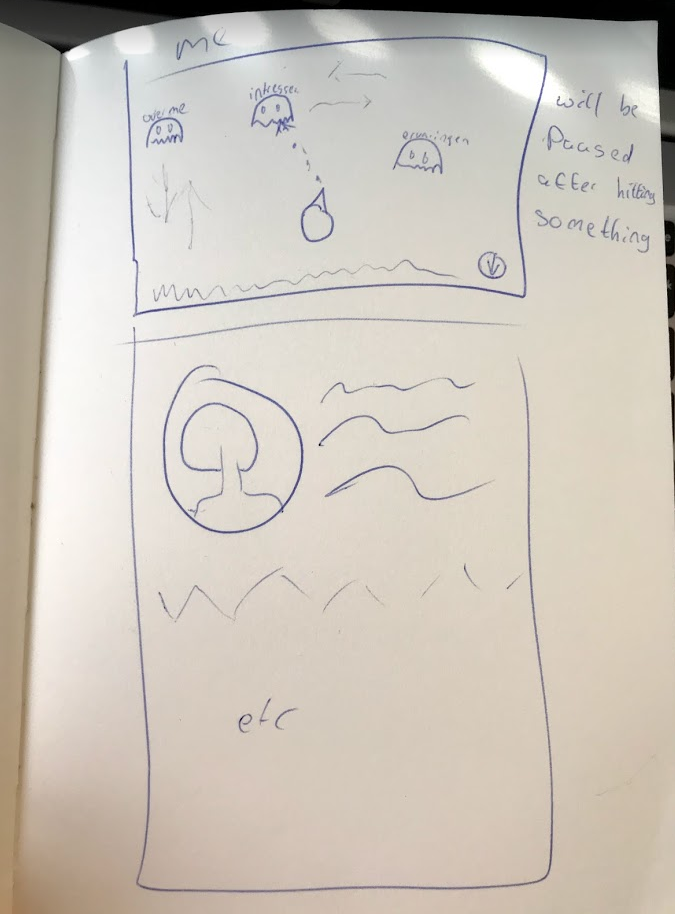 me
over me
intresses
ervaringen
will be
Paused
after hitting
something
etc